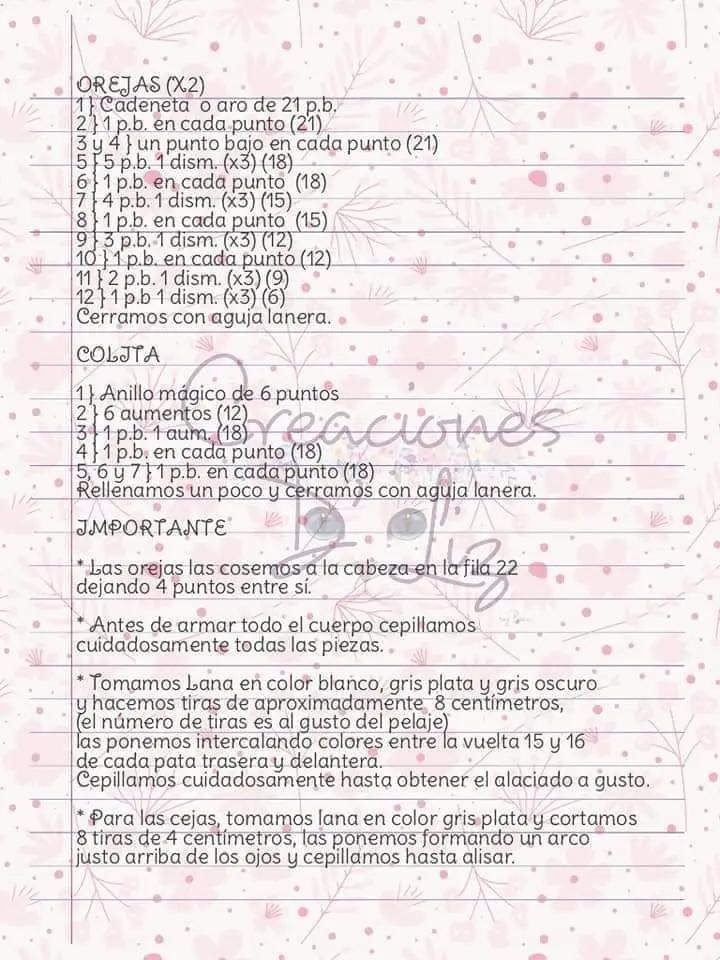 OREJAS (X2)
1} Cadeneta o aro de 21 p.b.
2} 1 p.b. en cada punto (21)
3 y 4} un punto bajo en cada punto (21)
5} 5 p.b. 1 dism. (x3) (18)
6} 1 p.b. en cada punto (18)
7} 4 p.b. 1 dism. (x3) (15)
8} 1 p.b. en cada punto (15)
9} 3 p.b. 1 dism. (x3) (12)
10} 1 p.b. en cada punto (12)
11} 2 p.b. 1 dism. (x3) (9)
12} 1 p.b 1 dism. (x3) (6)
Cerramos con aguja lanera.
COLITA
1} Anillo mágico de 6 puntos
2} 6 aumentos (12)
3} 1 p.b. 1 aum. (18)
4} 1 p.b. en cada punto (18)
5, 6 y 7} 1 p.b. en cada punto (18)
Rellenamos un poco y cerramos con aguja lanera.
Creaciones
D' Liz
IMPORTANTE
* Las orejas las cosemos a la cabeza en la fila 22
dejando 4 puntos entre sí.
* Antes de armar todo el cuerpo cepillamos
cuidadosamente todas las piezas.
* Tomamos Lana en color blanco, gris plata y gris oscuro
y hacemos tiras de aproximadamente 8 centímetros,
(el número de tiras es al gusto del pelaje)
las ponemos intercalando colores entre la vuelta 15 y 16
de cada pata trasera y delantera.
Cepillamos cuidadosamente hasta obtener el alaciado a gusto.
* Para las cejas, tomamos lana en color gris plata y cortamos
8 tiras de 4 centímetros, las ponemos formando un arco
justo arriba de los ojos y cepillamos hasta alisar.